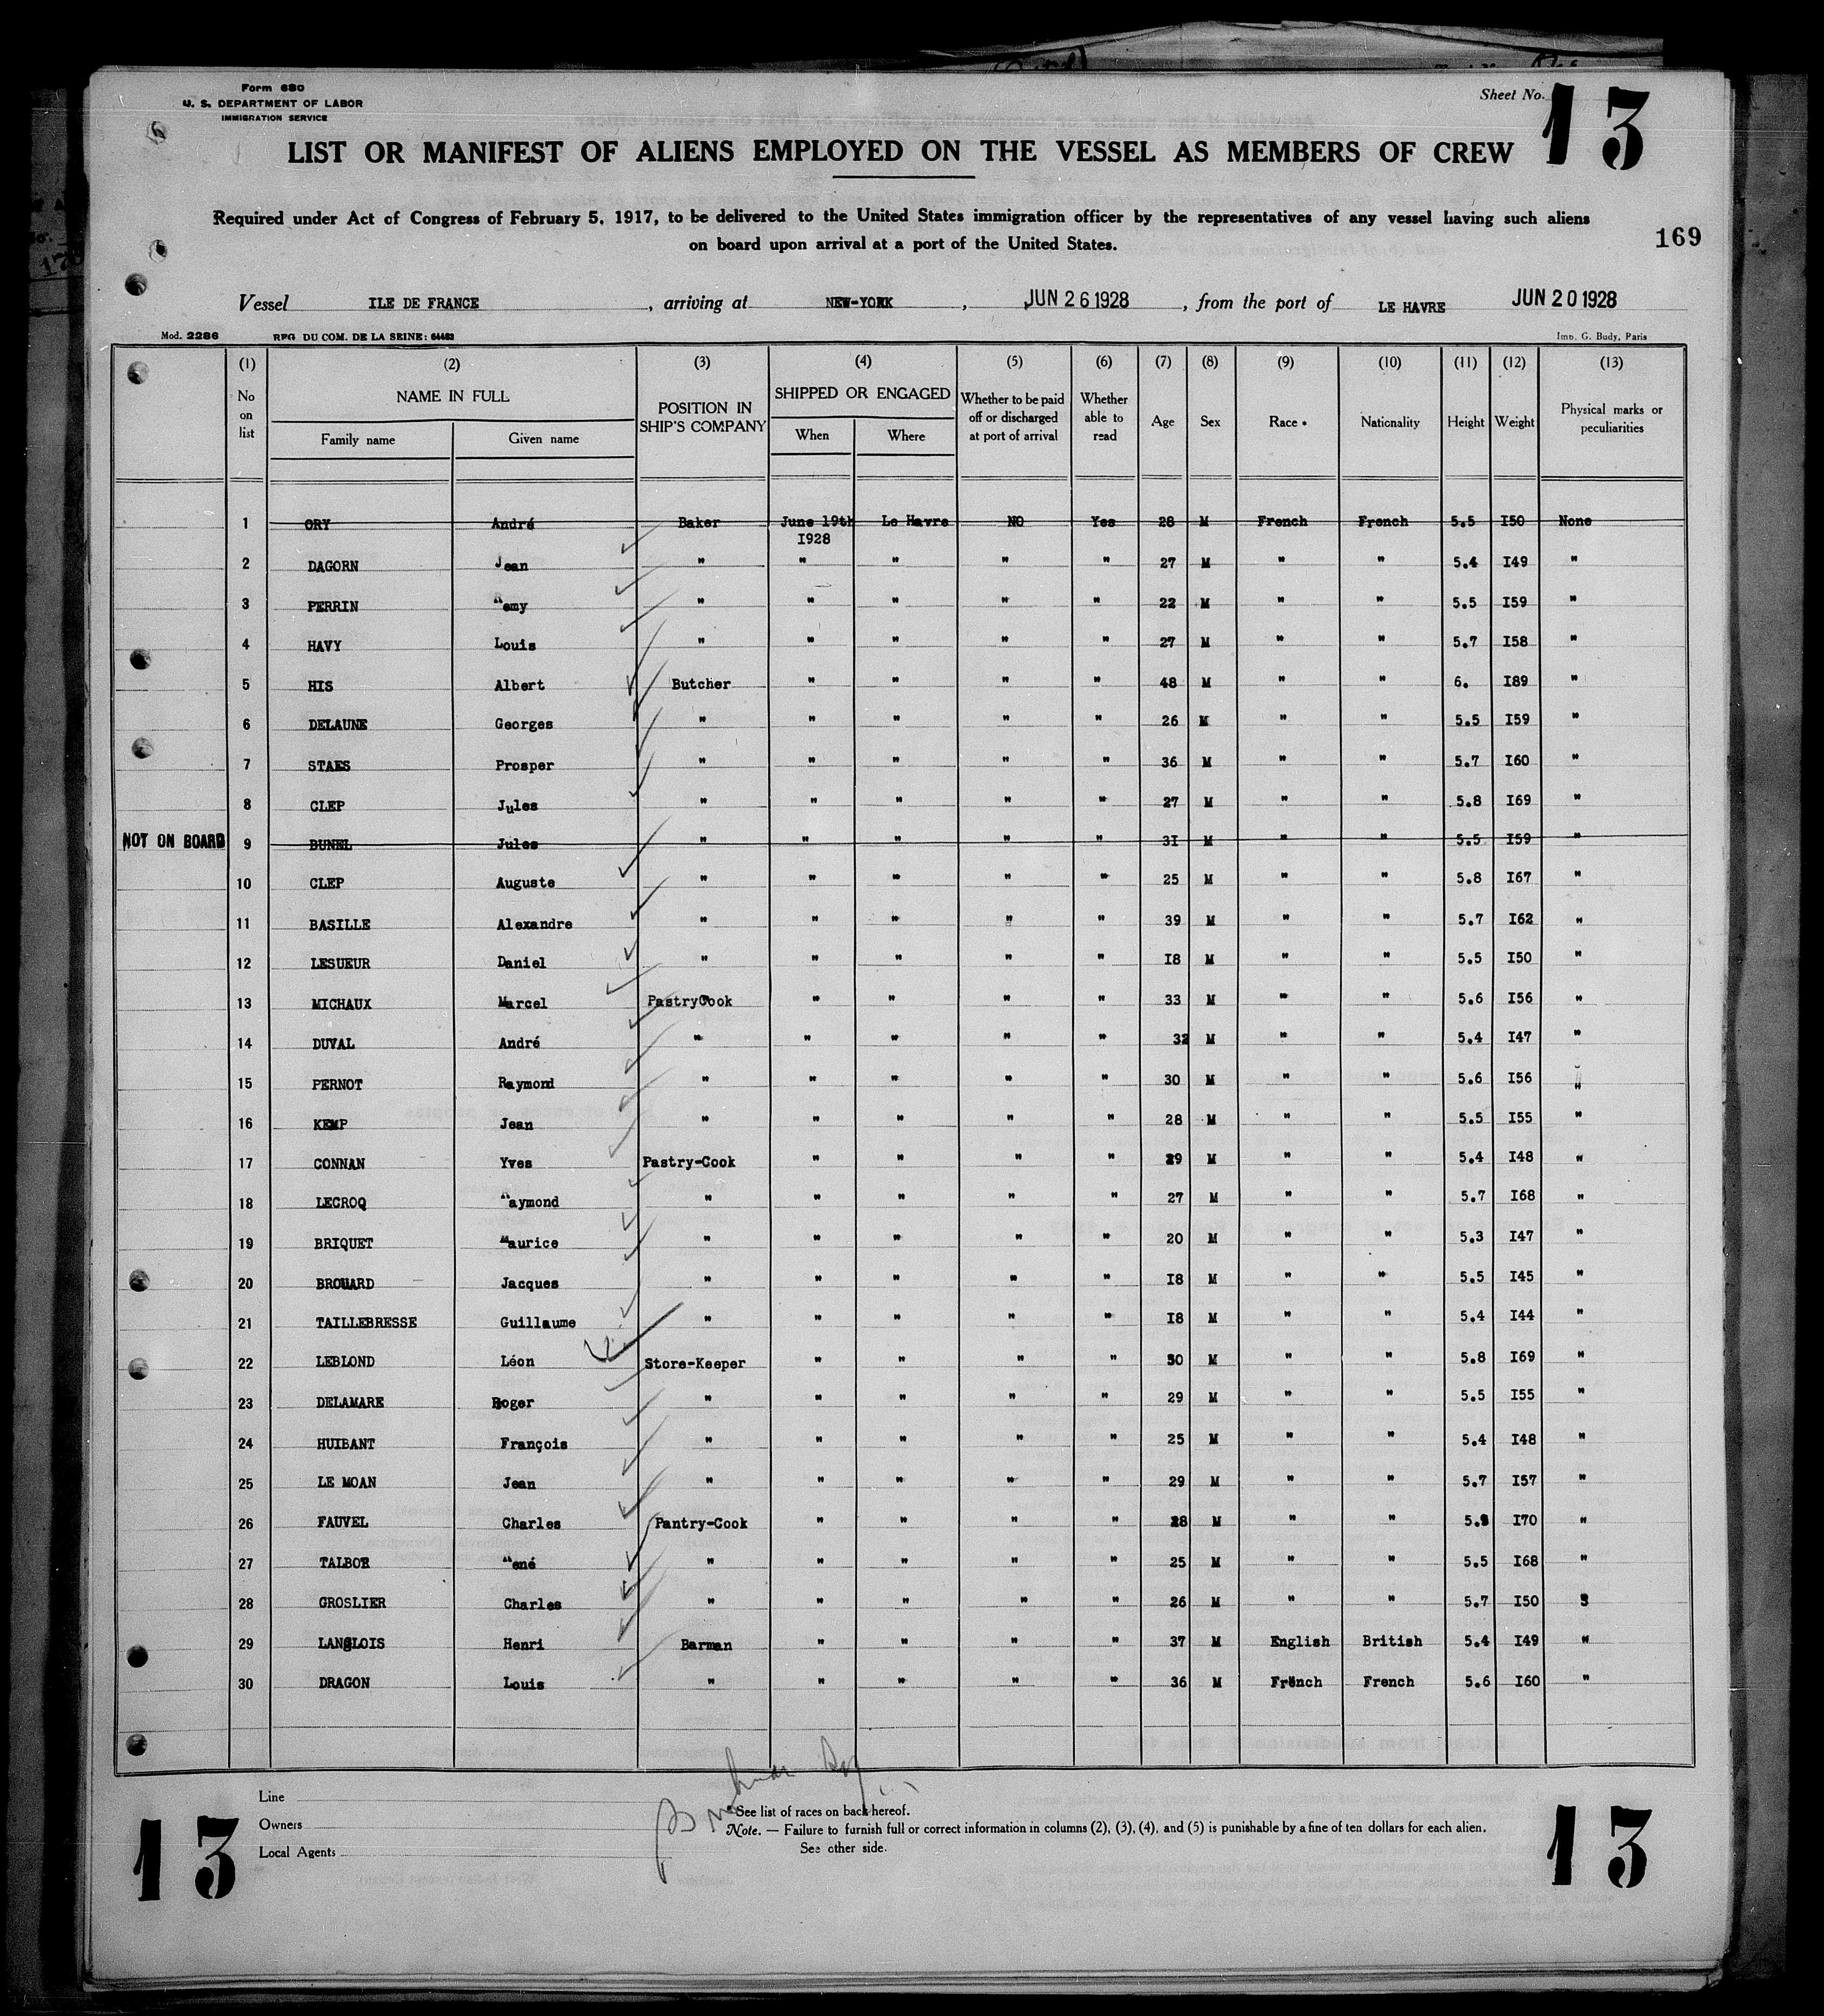 Form 680
U. S. DEPARTMENT OF LABOR
IMMIGRATION SERVICE
Sheet No. 13
LIST OR MANIFEST OF ALIENS EMPLOYED ON THE VESSEL AS MEMBERS OF CREW
Required under Act of Congress of February 5, 1917, to be delivered to the United States immigration officer by the representatives of any vessel having such aliens
on board upon arrival at a port of the United States.
169
Vessel ILE DE FRANCE, arriving at NEW-YORK, JUN 26 1928, from the port of LE HAVRE JUN 20 1928
Mod. 2286 REG DU COM. DE LA SEINE: 64483 Imp. G. Budy, Paris
(1) (2) (3) (4) (5) (6) (7) (8) (9) (10) (11) (12) (13)
No on list NAME IN FULL Family name Given name POSITION IN SHIP'S COMPANY SHIPPED OR ENGAGED When Where Whether to be paid off or discharged at port of arrival Whether able to read Age Sex Race * Nationality Height Weight Physical marks or peculiarities
1 ORY André Baker June 19th 1928 Le Havre NO Yes 28 M French French 5.5 I50 None
2 DAGORN Jean " " " " " 27 M " " 5.4 I49 "
3 PERRIN Remy " " " " " 22 M " " 5.5 I59 "
4 HAVY Louis " " " " " 27 M " " 5.7 I58 "
5 HIS Albert Butcher " " " " 48 M " " 6. I89 "
6 DELAUNE Georges " " " " " 26 M " " 5.5 I59 "
7 STAES Prosper " " " " " 36 M " " 5.7 I60 "
8 CLEP Jules " " " " " 27 M " " 5.8 I69 "
NOT ON BOARD 9 BUNEL Jules " " " " " 3I M " " 5.5 I59 "
10 CLEP Auguste " " " " " 25 M " " 5.8 I67 "
11 BASILLE Alexandre " " " " " 39 M " " 5.7 I62 "
12 LESUEUR Daniel " " " " " I8 M " " 5.5 I50 "
13 MICHAUX Marcel PastryCook " " " " 33 M " " 5.6 I56 "
14 DUVAL André " " " " " 32 M " " 5.4 I47 "
15 PERNOT Raymond " " " " " 30 M " " 5.6 I56 "
16 KEMP Jean " " " " " 28 M " " 5.5 I55 "
17 CONNAN Yves Pastry-Cook " " " " 29 M " " 5.4 I48 "
18 LECROQ Raymond " " " " " 27 M " " 5.7 I68 "
19 BRIQUET Maurice " " " " " 20 M " " 5.3 I47 "
20 BROUARD Jacques " " " " " I8 M " " 5.5 I45 "
21 TAILLEBRESSE Guillaume " " " " " I8 M " " 5.4 I44 "
22 LEBLOND Léon Store-Keeper " " " " 30 M " " 5.8 I69 "
23 DELAMARE Roger " " " " " 29 M " " 5.5 I55 "
24 HUIBANT François " " " " " 25 M " " 5.4 I48 "
25 LE MOAN Jean " " " " " 29 M " " 5.7 I57 "
26 FAUVEL Charles Pantry-Cook " " " " 28 M " " I70 "
27 TALBOR René " " " " " 25 M " " 5.5 I68 "
28 GROSLIER Charles " " " " " 26 M " " 5.7 I50
29 LANGLOIS Henri Barman " " " " 37 M English British 5.4 I49 "
30 DRAGON Louis " " " " " 36 M French French 5.6 I60 "
Line
Owners
Local Agents
*See list of races on back hereof.
Note. — Failure to furnish full or correct information in columns (2), (3), (4), and (5) is punishable by a fine of ten dollars for each alien.
See other side.
13 13